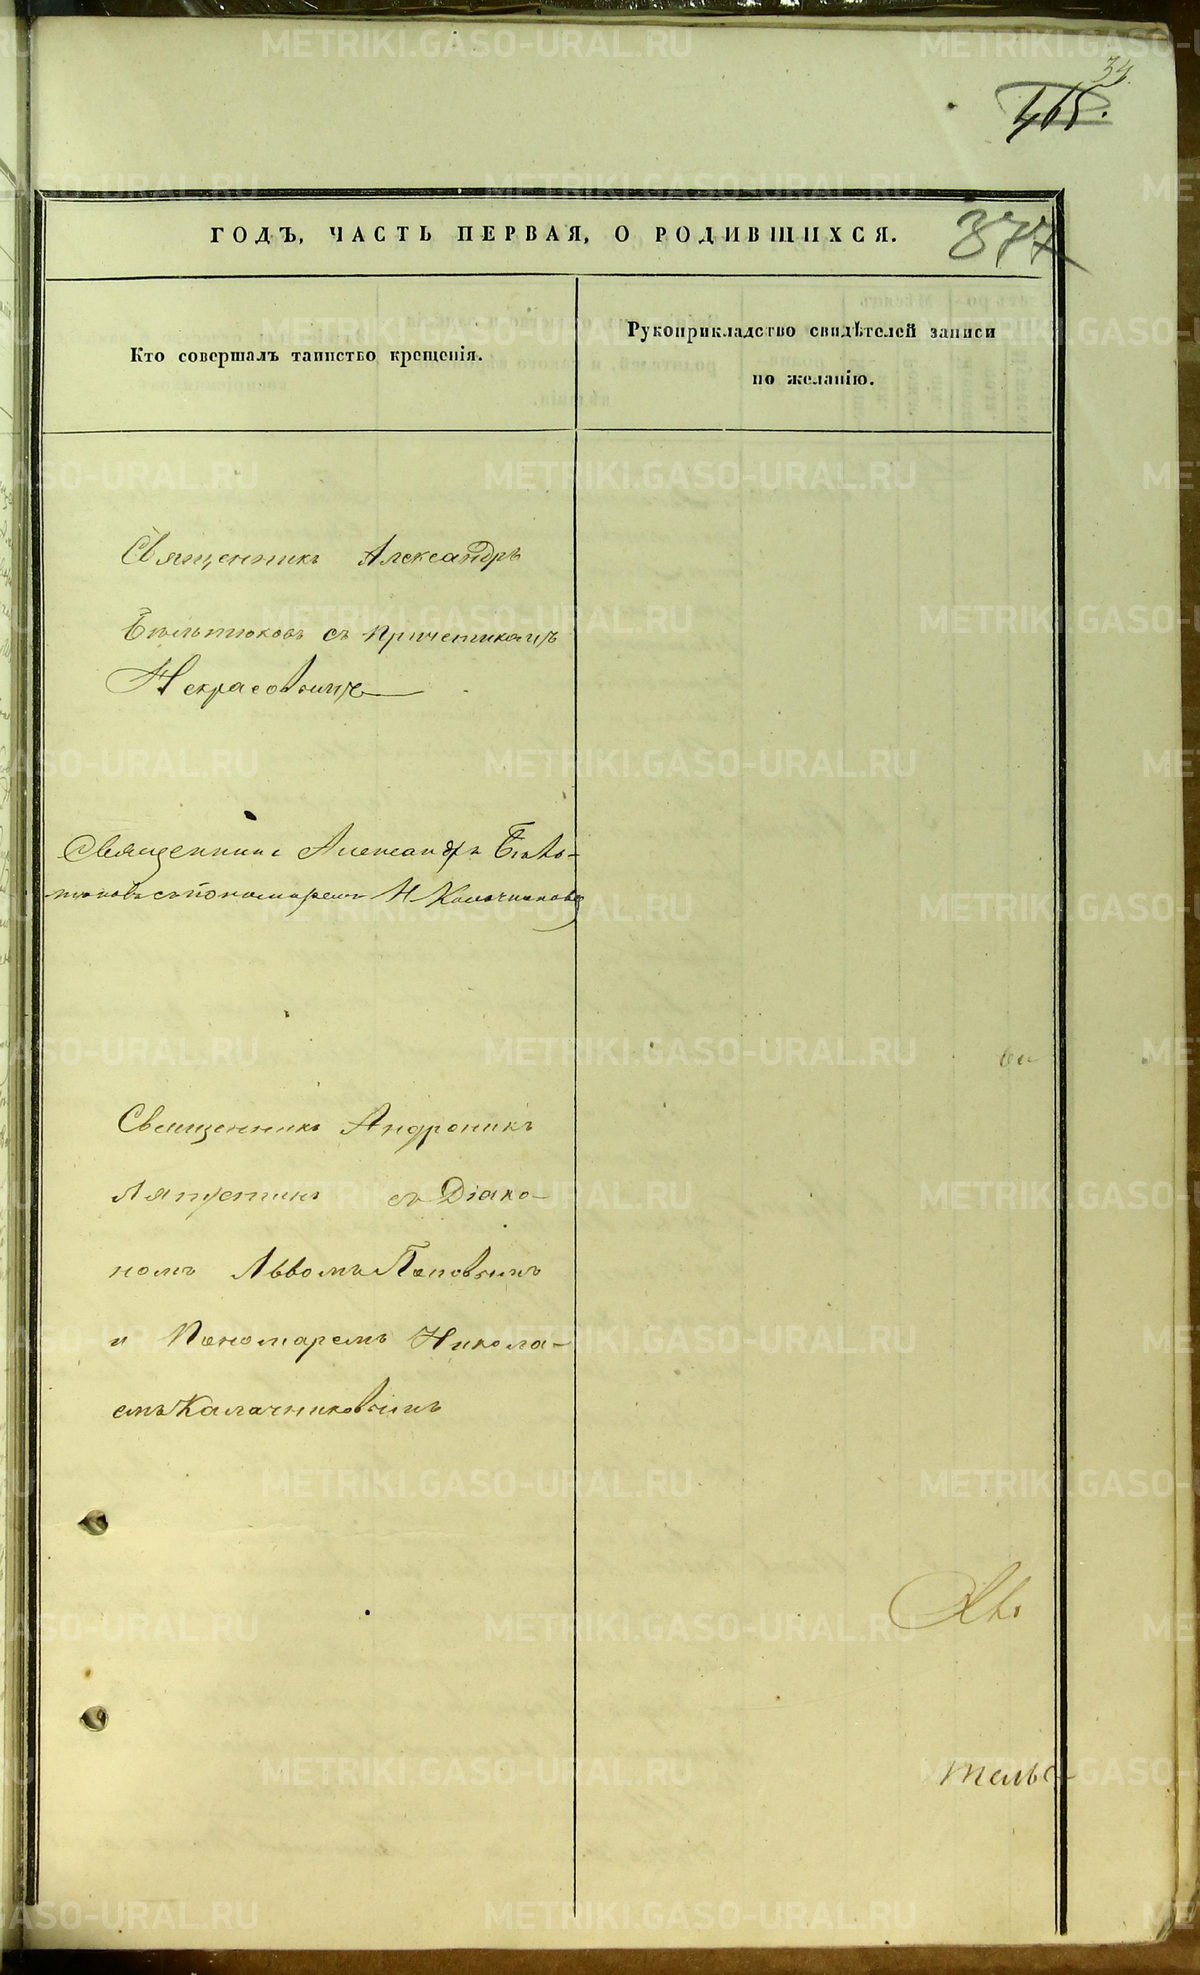 34.
465.
377
ГОДЪ, ЧАСТЬ ПЕРВАЯ, О РОДИВШИХСЯ.
Кто совершалъ таинство крещенія.
Рукоприкладство свидѣтелей записи
по желанію.
Священникъ Александръ
съ причетникомъ
Некрасовымъ
Священникъ Александръ
съ пономаремъ Н Калачниковъ
Священникъ Андроникъ
Ляпустинъ съ Діако-
номъ Львомъ Поповымъ
и Пономаремъ Никола-
емъ Калачниковымъ
тельс
METRIKI.GASO-URAL.RU